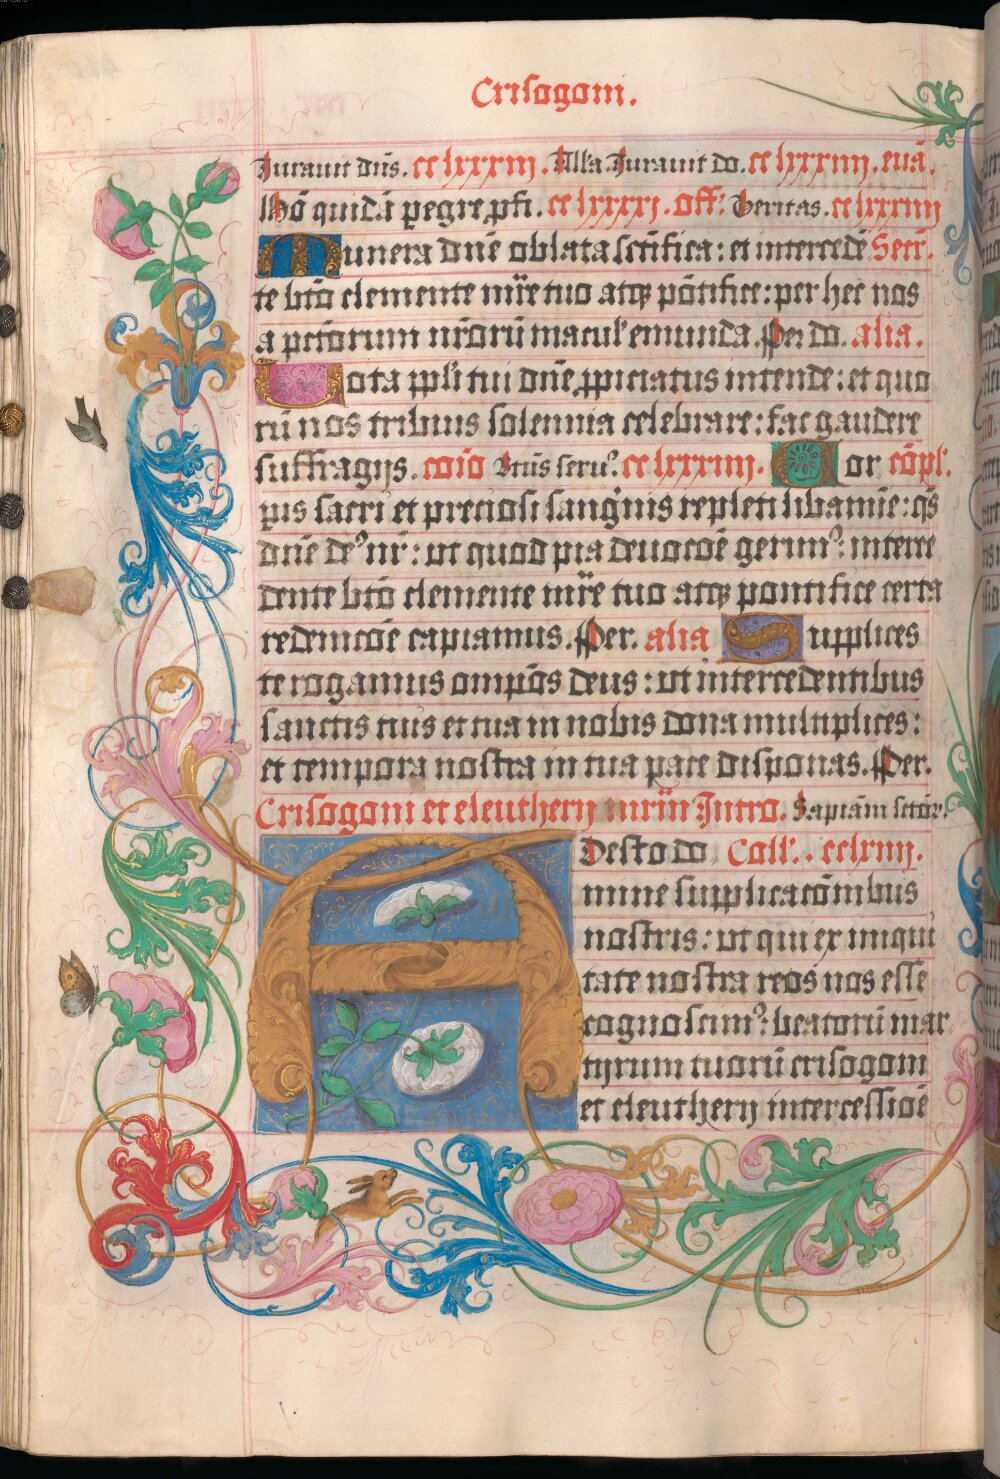 Crisogoni.
Iurauit dn̄s. cclxxxiii. Alla. Iurauit do. cclxxxiiii. euā.
Hō quidā pegre ꝓfi. cclxxxxi. Off. Veritas. cclxxxiiii
Munera dn̄e oblata sctīfica: et intercedē Secr̄.
te btō clemente mr̄e tuo atqꝫ pōtifice: per hec nos
a pctōrum nr̄orū macul' emunda. Per do. alia.
Uota ppli tui dn̄e ꝓpiciatus intende: et quo
rū nos tribuis solennia celebrare: fac gaudere
suffragijs. coīo Btūs seruꝰ. cclxxxiiii. Cor cōpl'.
pis sacri et preciosi sang'nis repleti libamīe: qs̄
dn̄e deꝰ nr̄: ut quod pia deuocōe gerimꝰ: interce
dente btō clemente mr̄e tuo atqꝫ pontifice certa
redemcōe capiamus. Per. alia Supplices
te rogamus omp̄os deus: ut intercedentibus
sanctis tuis et tua in nobis dona multiplices:
et tempora nostra in tua pace disponas. Per.
Crisogoni et eleutherij mr̄in Intro. Sapiām sctōr.
ADesto do Coll'. cclxiiij.
mine supplicacōnibus
nostris: ut qui ex iniqui
tate nostra reos nos esse
cognoscimꝰ: beatorū mar
tyrum tuorū crisogoni
et eleutherij intercessiōē